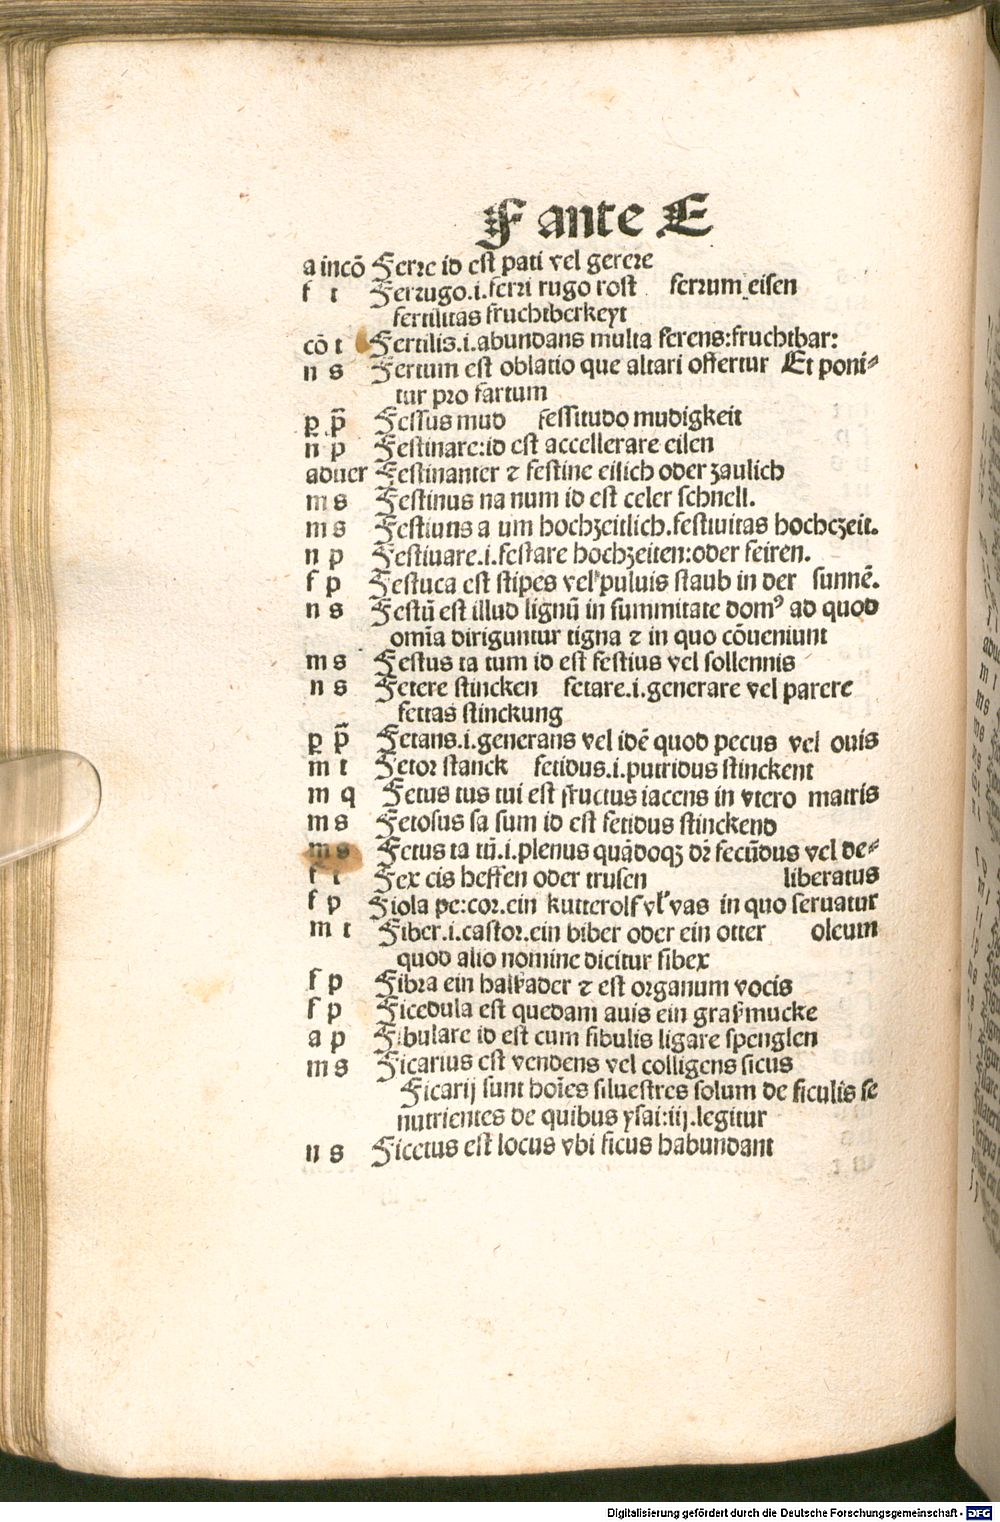 F ante E
a incō Ferre id est pati vel gerere
f t Ferrugo.i.ferri rugo rost ferrum eisen
fertilitas fruchtberkeyt
cō t Fertilis.i.abundans multa ferens:fruchtbar:
n s Fertum est oblatio que altari offertur Et poni⸗
tur pro fartum
p̲ p̄ Fessus mud fessitudo mudigkeit
n p Festinare:id est accellerare eilen
aduer Festinanter ⁊ festine eilich oder zaulich
m s Festinus na num id est celer schnell.
m s Festiuus a um hochzeitlich.festiuitas hochczeit.
n p Festiuare.i.festare hochzeiten:oder feiren.
f p Festuca est stipes vel puluis staub in der sunnē.
n s Festū est illud lignū in summitate domꝰ ad quod
omīa diriguntur tigna ⁊ in quo cōueniunt
m s Festus ta tum id est festius vel sollennis
n s Fetere stincken fetare.i.generare vel parere
fettas stinckung
p̲ p̄ Fetans.i.generans vel idē quod pecus vel ouis
m t Fetor stanck fetidus.i.putridus stinckent
m q Fetus tus tui est fructus iacens in vtero matris
m s Fetosus sa sum id est fetidus stinckend
m s Fetus ta tū.i.plenus quādoqꝫ dr̄ fecūdus vel de⸗
f t Fex cis heffen oder trusen liberatus
f p Fiola pe:cor.ein kutterolf vl' vas in quo seruatur
m t Fiber.i.castor.ein biber oder ein otter oleum
quod alio nomine dicitur fibex
f p Fibra ein halſzader ⁊ est organum vocis
f p Ficedula est quedam auis ein graſzmucke
a p Fibulare id est cum fibulis ligare spenglen
m s Ficarius est vendens vel colligens ficus
Ficarij sunt hoīes siluestres solum de ficulis se
nutrientes de quibus ysai:iij.legitur
n s Ficetus est locus vbi ficus habundant
Digitalisierung gefördert durch die Deutsche Forschungsgemeinschaft - DFG